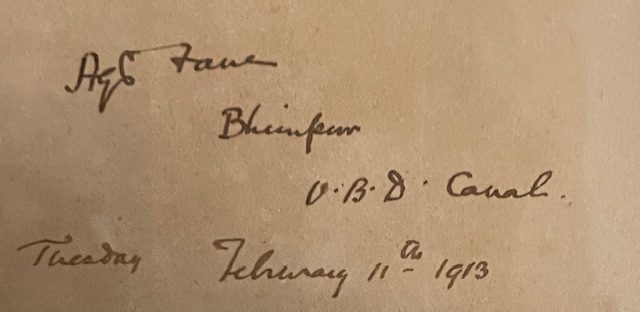 AgS Fane
Bhimpur
U.B.D. Canal.
Tuesday February 11th 1913